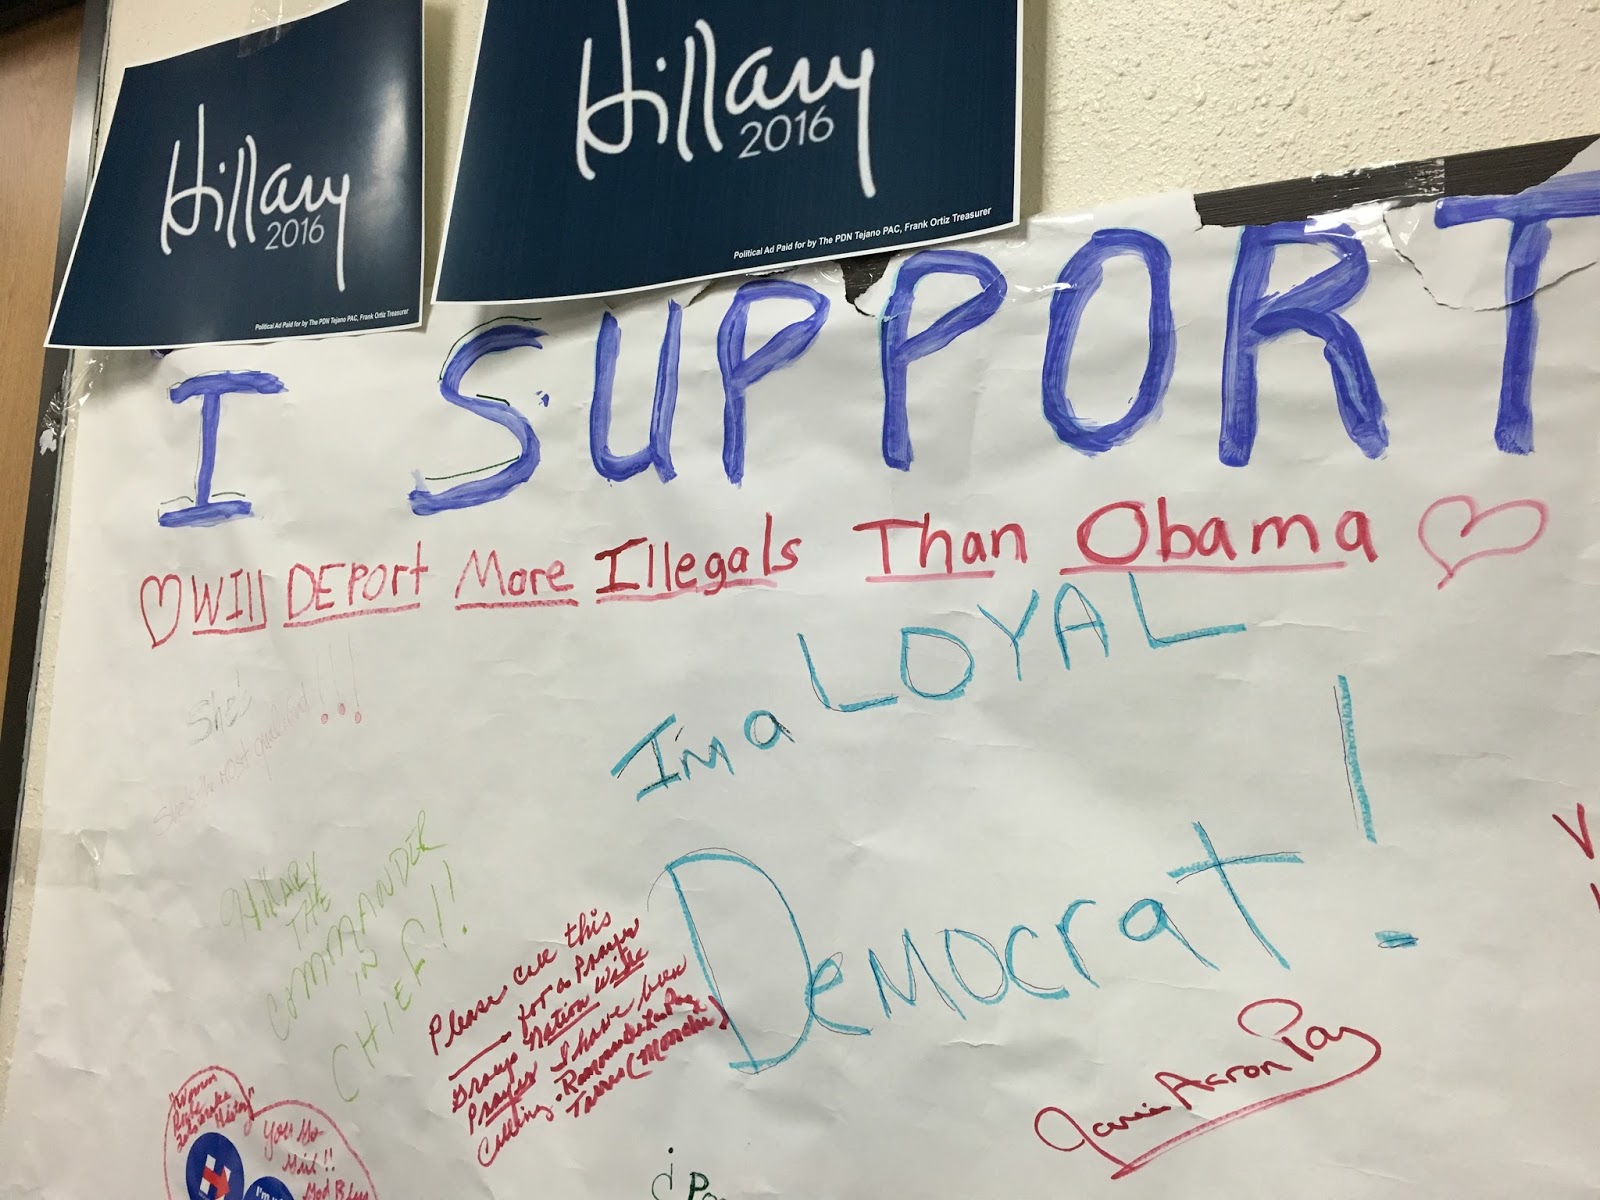 Hillary
2016
Political Ad Paid for by The PDN Tejano PAC, Frank Ortiz Treasurer
Hillary
2016
Political Ad Paid for by The PDN Tejano PAC, Frank Ortiz Treasurer
I SUPPORT
Will DEPort More Illegals Than Obama
She's !!!
She's the MOST
I'm a LOYAL
Democrat!
Hillary
THE
COMMANDER
IN
CHIEF!!
Please call this
for a Prayer
Group Nation Wide
Prayer I have been
Calling.
"Women
History"
You Go
Girl!!
God Bless
H
I'm
¡